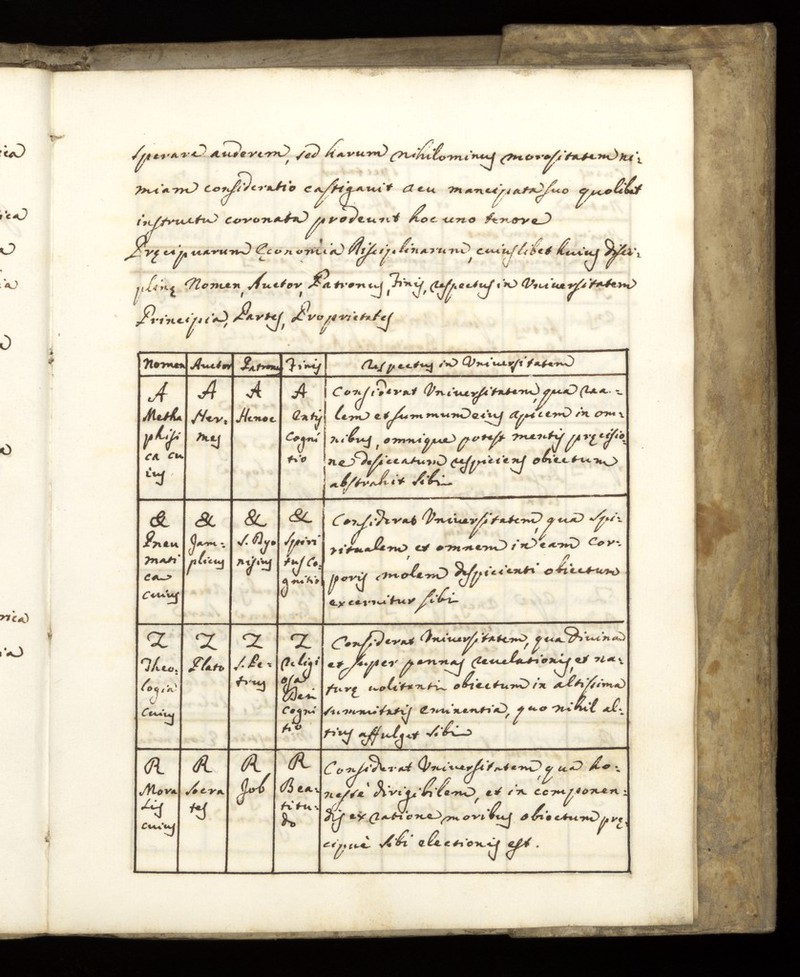 sperare auderem, sed harum nihilominus morositatem ni:
miam consideratio castigavit acu mancipata suo quolibet
instructu coronata prodeunt hoc uno tenore
Pręcipuarum Œconomia Disciplinarum, cuiuslibet huius disci:
plinę Nomen, Auctor, Patronus, Finis, respectus in Universitatem
Principia, Partes, Proprietates
Nomen Auctor Patronus Finis respectus in Universitatem
A
Metha
phisi
ca cu
ius
A
Her:
mes
A
Henoc
A
Entis
Cogni
tio
Considerat Universitatem, qua rea:
lem et summum eius apicem in om:
nibus, omnique potest mentis pręcisio
ne desiccatum respiciens obiectum
abstrahit sibi
&
Pneu
mati
ca
cuius
&
Jam:
plicus
&
S. Dyo
nisius
&
Spiri
tus Co:
gnitio
Considerat Universitatem, qua spi:
ritualem, et omnem in eam cor:
poris molem despicienti obiectum
excernitur sibi
Z
Theo:
logia
cuius
Z
Plato
Z
S. Pe:
trus
Z
religi
osa
Dei
cogni
tio
Considerat Universitatem, qua divina
et super pennas revelationis, et na:
turę volitanti obiectum in altissima
summitatis eminentia, quo nihil al:
tius affulget sibi
R
Mora
lis
cuius
R
Socra
tes
R
Job
R
Bea:
titu:
do
Considerat Universitatem, qua ho:
nestè dirigibilem, et in componen:
dis ex ratione moribus obiectum prę:
cipuè sibi electionis est.
ica
ica
a
rica
ia